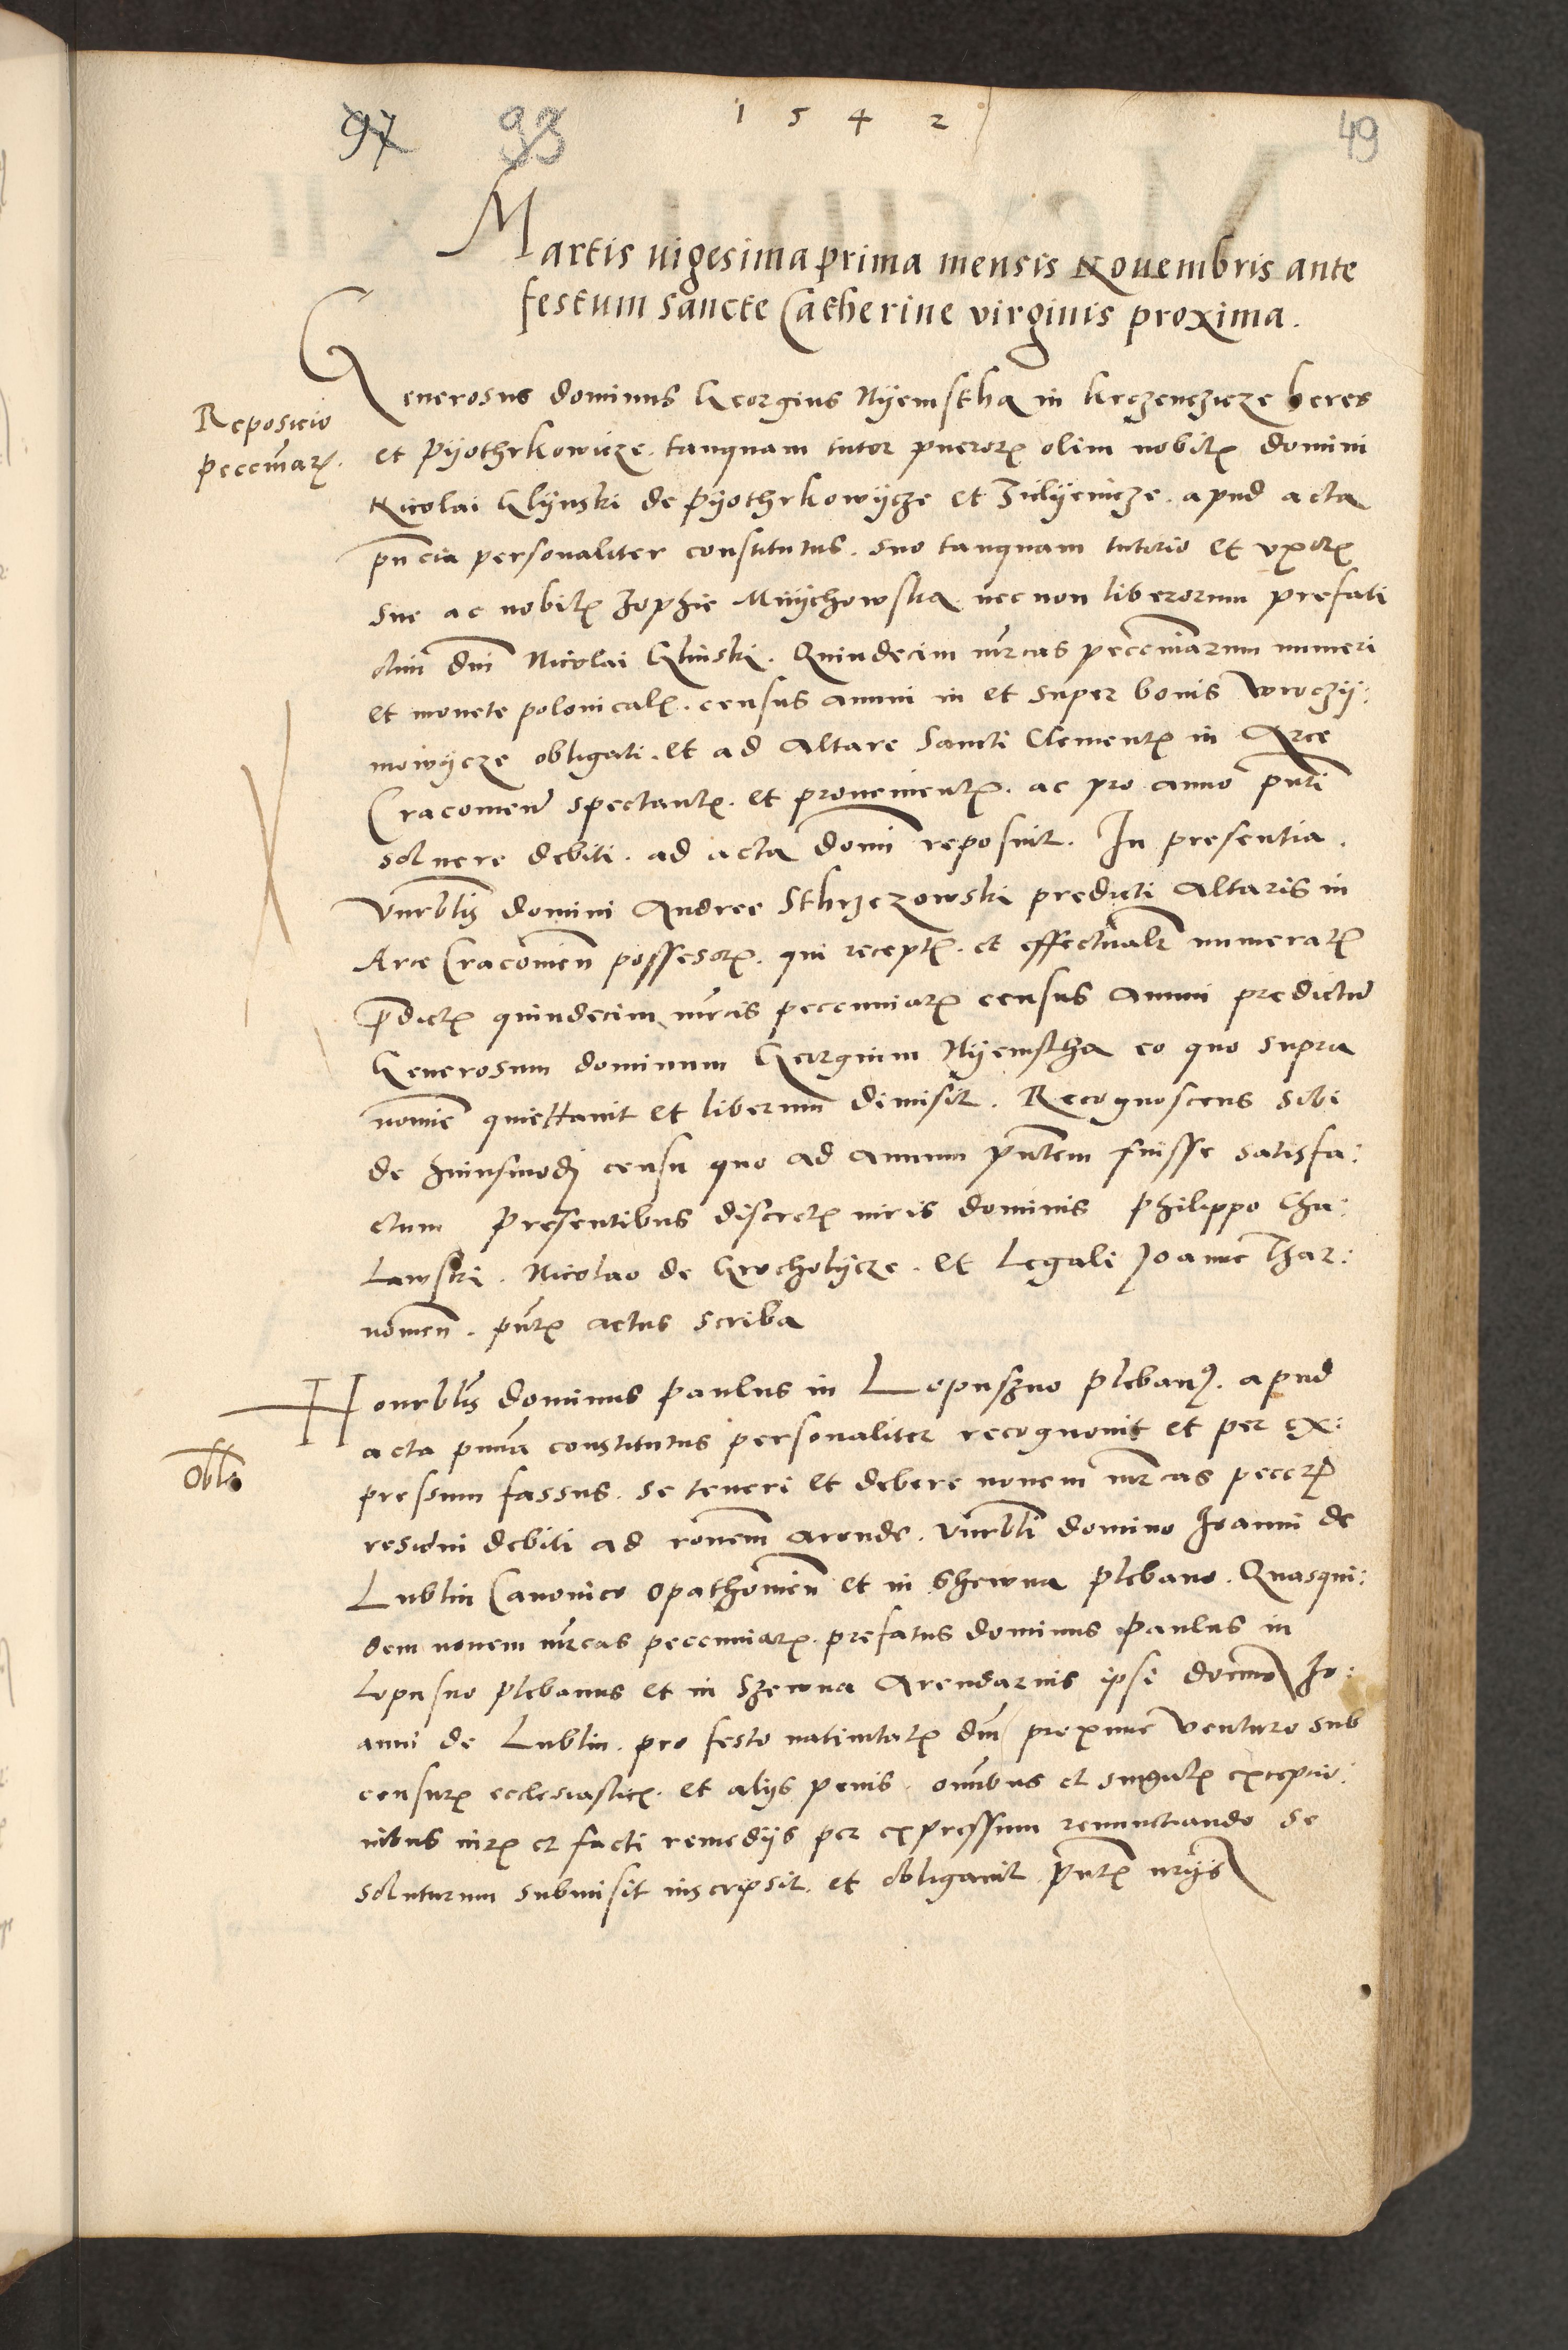 97 93 1 5 4 2 49
Martis uigesima prima mensis Nouembris ante
festum Sancte Catherine virginis proxima.
Reposicio
peccuniarꝫ.
Generosus dominus Georgius Nyemstha in Krczenczicze heres
et Pyothrkowicze. tanquam tutor puerorꝫ olim nobilꝫ domini
Nicolai Glynski de Pyothrkowycze et . apud acta
pñcia personaliter constitutus. suo tanquam tutorio et vxorꝫ
sue ac nobilꝫ Zophie Mnychowska necnon liberorum prefati
olim dni Nicolai Glinski. Quindecim mrcas peccuniarum numeri
et monete polonicalꝫ. census annui in et super bonis Wroczy:
mowycze obligati. et ad Altare Sancti Clementꝫ in Arce
Cracouien spectantꝫ. et prouenientꝫ. ac pro anno pnti
soluere debiti. ad acta domi reposuit. In presentia.
Vnrblis domini Andree Sthrzezowski predicti Altaris in
Arce Cracouien possessorꝫ. qui receptꝫ. et effectualr numeratꝫ
pdictꝫ quindecim mrcis peccuniarꝫ census annui predictum
Generosum dominum Georgium Nyemstha eo quo supra
nomine quiettauit et liberum dimisit. Recognoscens sibi
de huiusmodj censu quo ad annum pntem fuisse satisfa:
ctum Presentibus discretꝫ viris dominis Philippo Cha:
lawski. Nicolao de Grocholycze. et Legali Joanne Thar:
nouien. pntꝫ actus scriba
Oblo
Honrblis dominus Paulus in Lopuszno plebanꝰ. apud
acta pnna constitutus personaliter recognouit et per ex:
pressum fassus. se teneri et debere nouem mrcas peccrꝫ
residui debiti ad ronem arende. Vnrbli domino Joanni de
Lublin Canonico Opathouien et in Shewna plebano. Quasqui:
dem nouem mrcas peccuniarꝫ. prefatus dominus Paulus in
Lopusno plebanus et in Szewna Arendarius ipsi domino Jo:
anni de Lublin. pro festo natiuitatꝫ dni proxime venturo sub
censurꝫ ecclesiasticꝫ. et alijs penis. omnibus et singulꝫ exceptio:
nibus iurꝫ et facti remedijs per expressum renunctiando se
soluturum submisit inscripsit. et obligauit pntꝫ